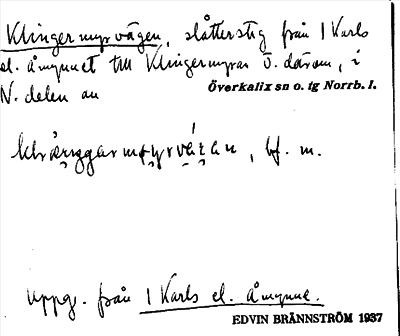 Klingermyrvägen, slåtterstig från 1 Karls
el. åmynnet till Klingermyran Ö. därom, i
N. delen av Överkalix sn o. tg Norrb. l.
bf. m.
Uppg. från 1 Karls el. Åmynne.
EDVIN BRÄNNSTRÖM 1937